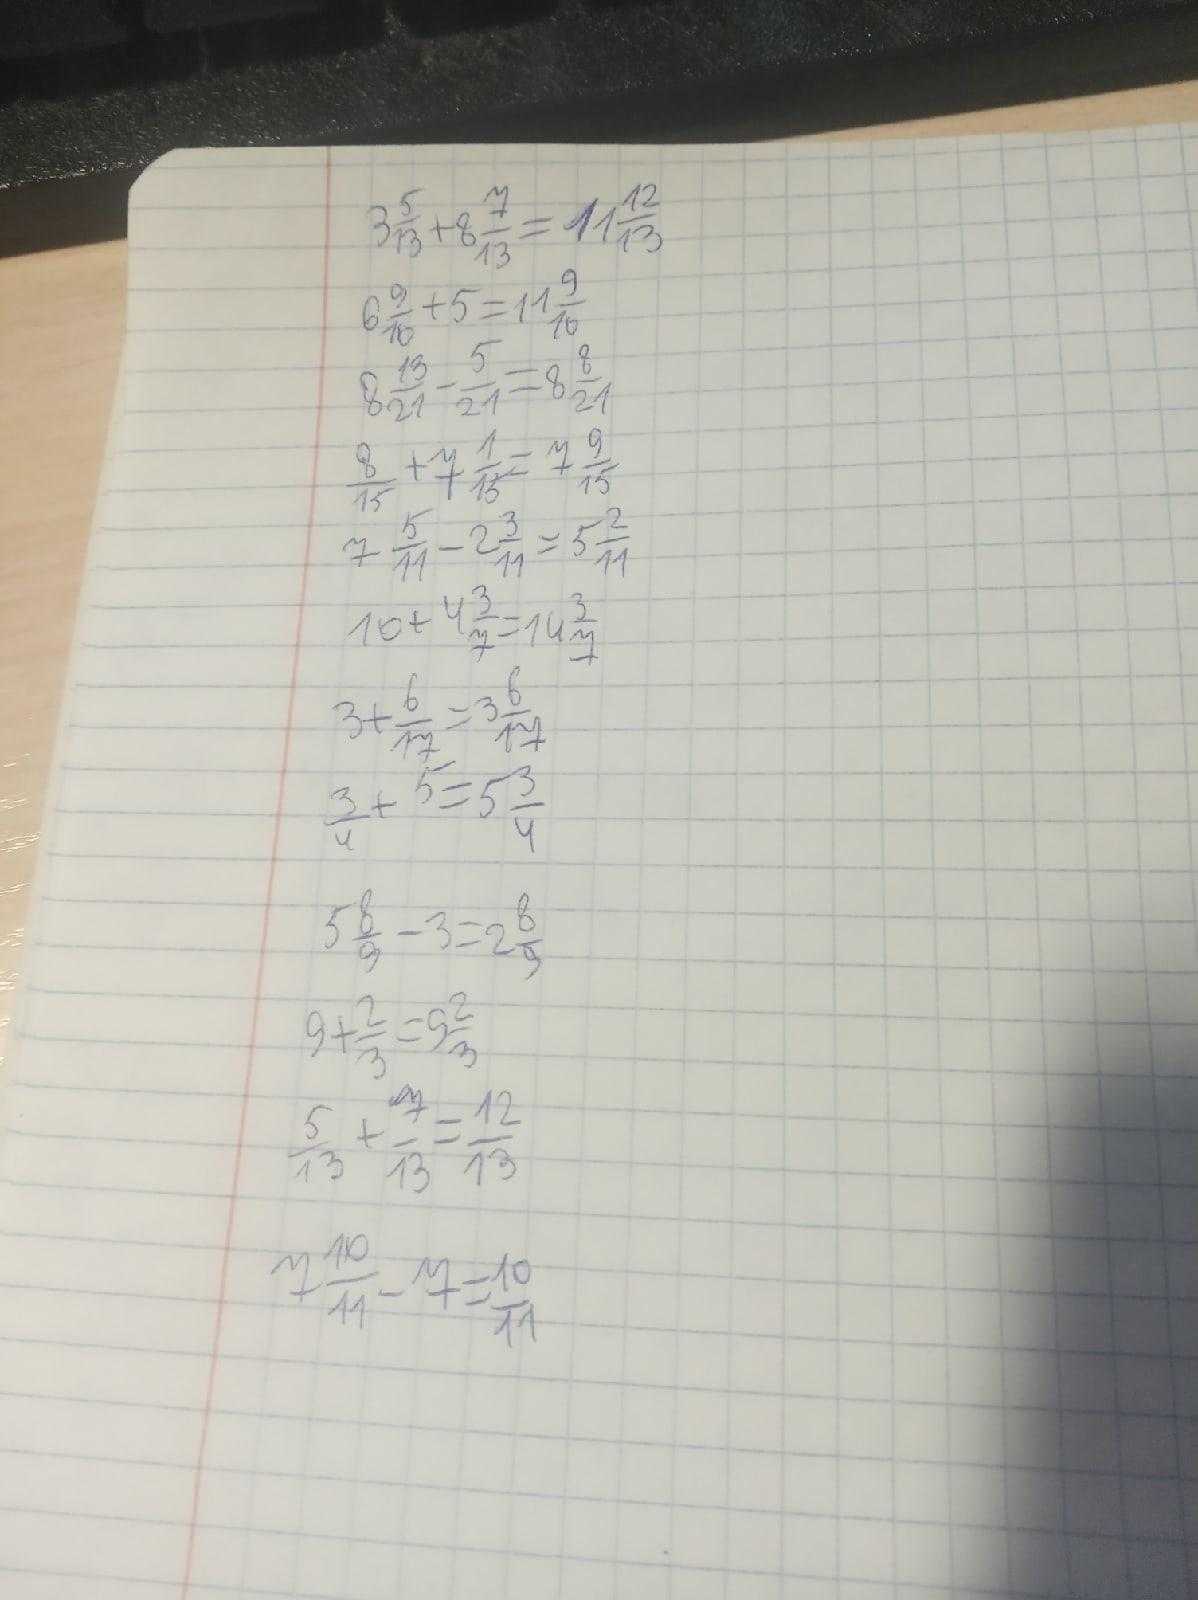 3 5/13 + 8 7/13 = 11 12/13
6 9/10 + 5 = 11 9/10
8 13/21 - 5/21 = 8 8/21
8/15 + 7 1/15 = 7 9/15
7 5/11 - 2 3/11 = 5 2/11
10 + 4 3/7 = 14 3/7
3 + 6/17 = 3 6/17
3/4 + 5 = 5 3/4
5 8/9 - 3 = 2 8/9
9 + 2/3 = 9 2/3
5/13 + 7/13 = 12/13
7 10/11 - 7 = 10/11